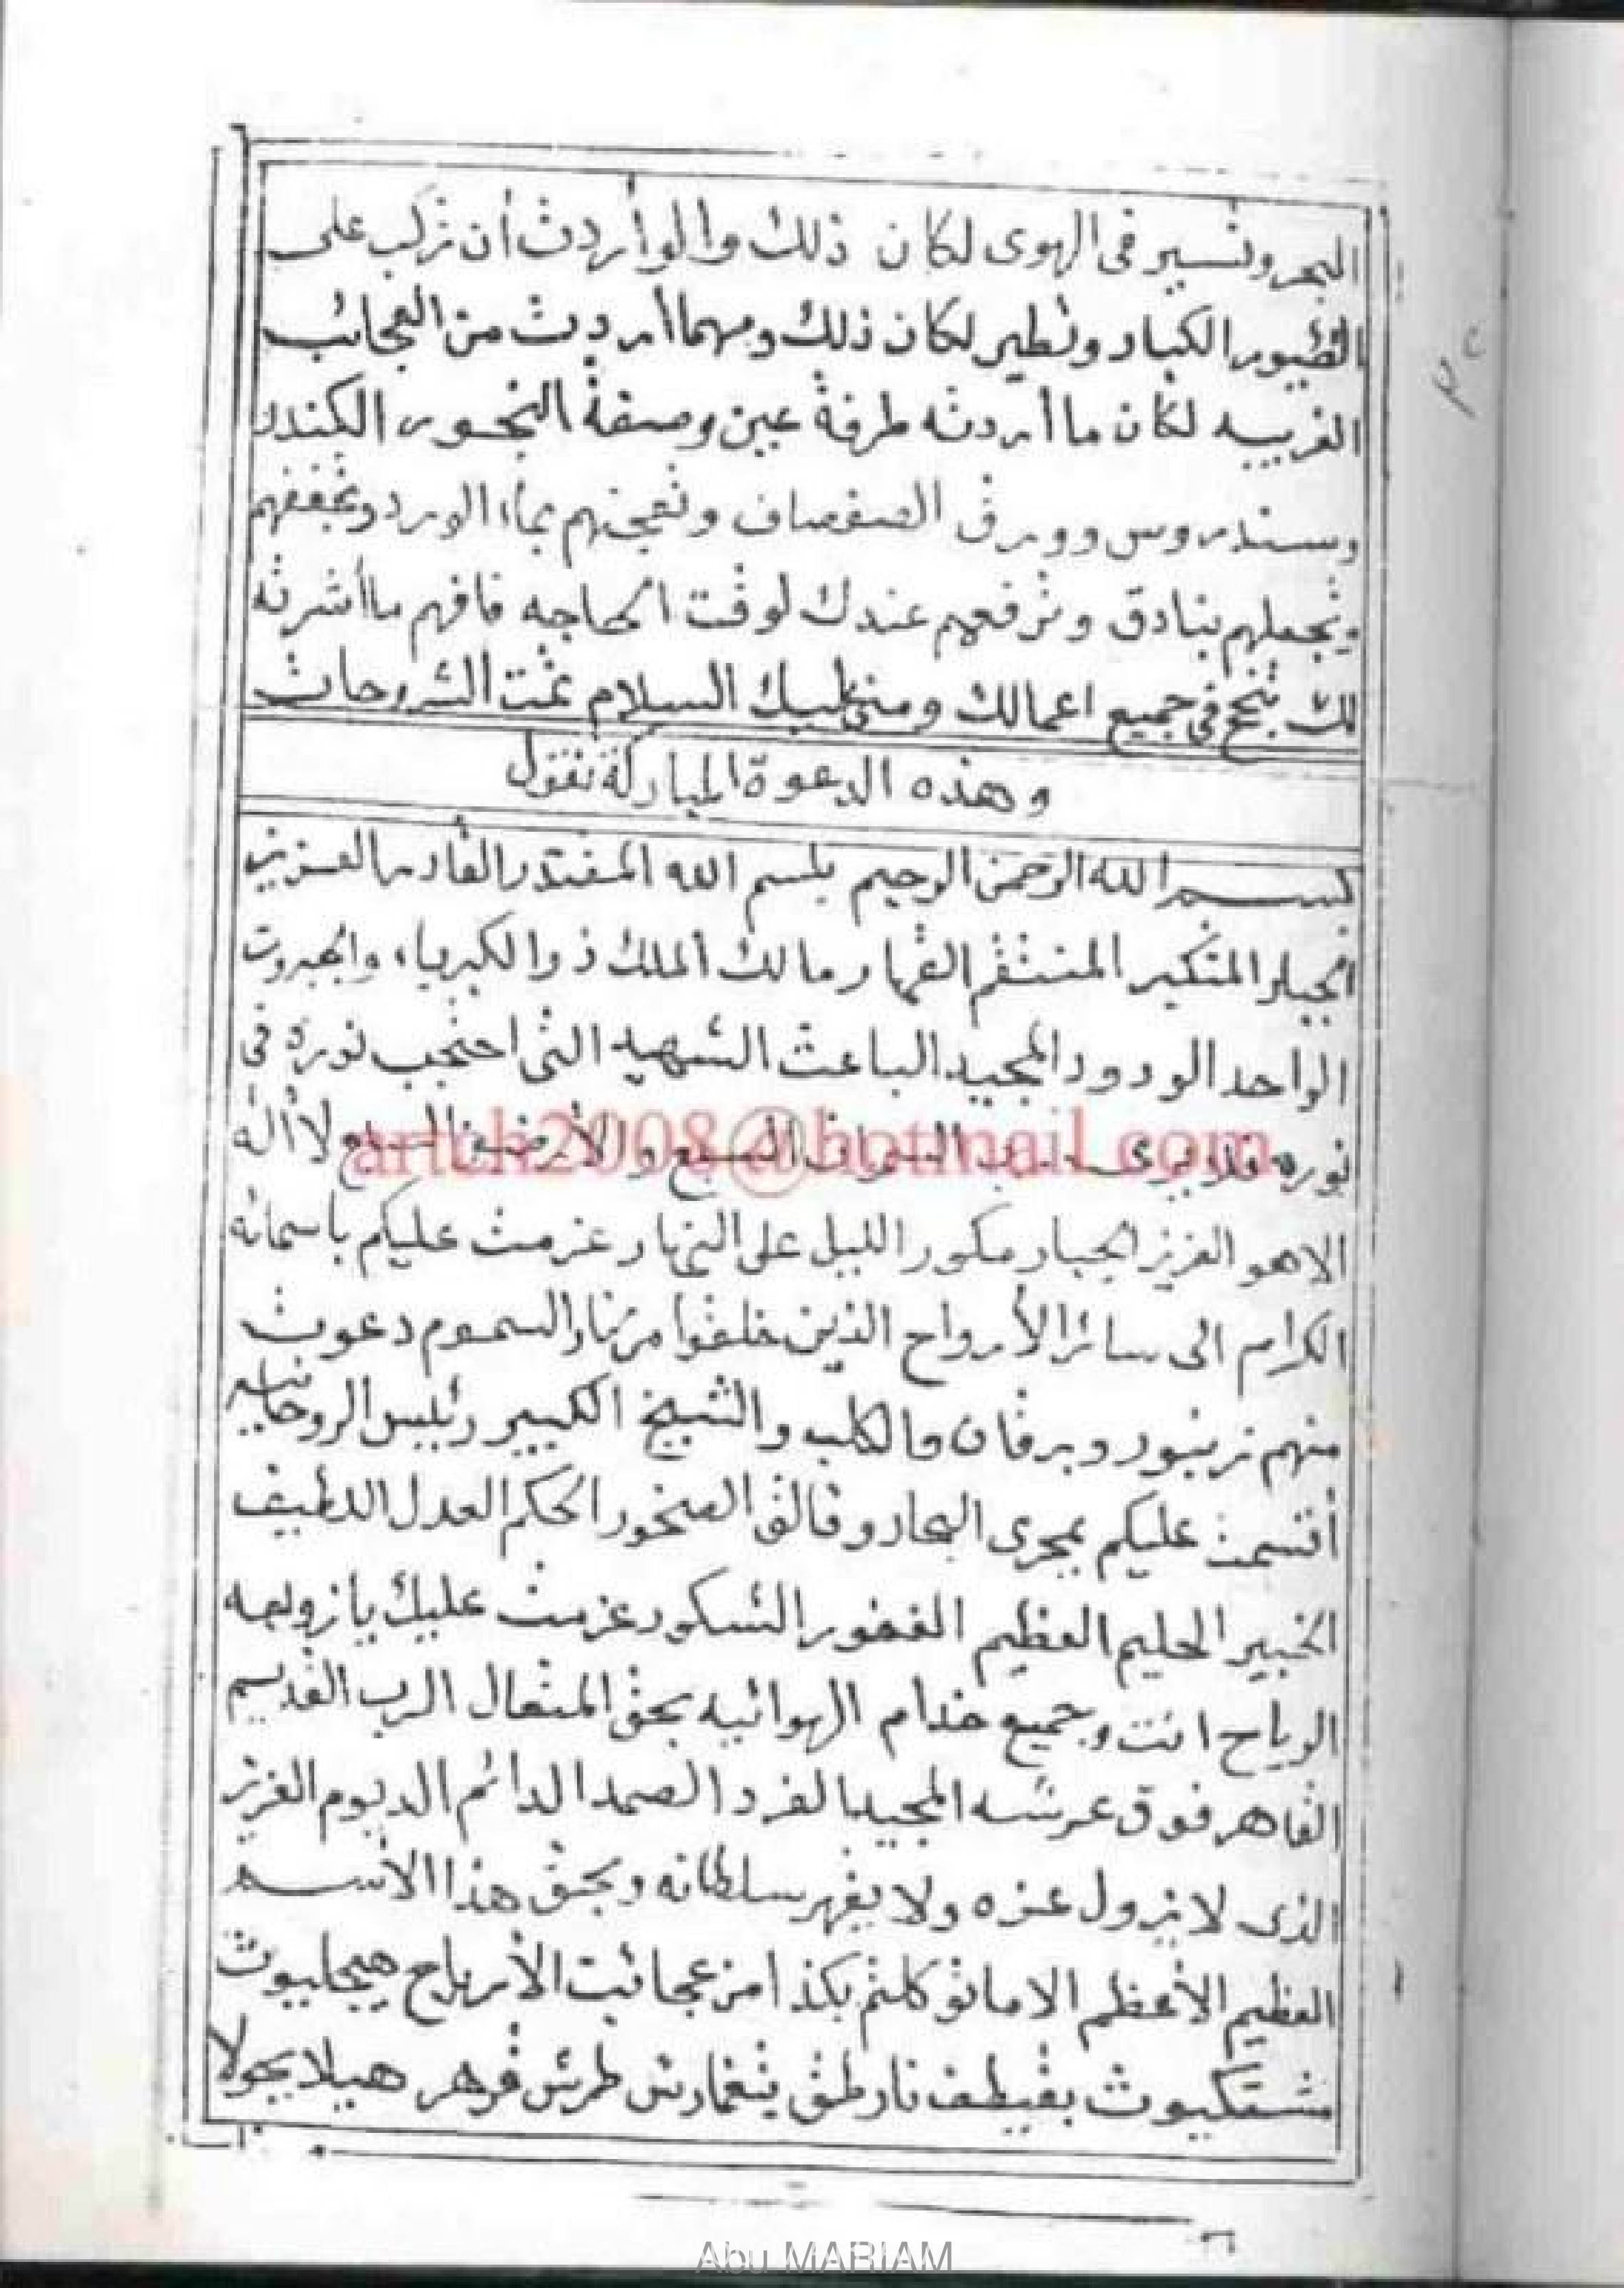 البحر وتسير فى الهوى لكان ذلك والو أردت أن تركب على
الطيور الكبار وتطير لكان ذلك ومهما أردت من العجائب
الغريبه لكان ما أردته طرفة عين وصفة البخور الكندر
وسندروس وورق الصفصاف وتعجنهم بماء الورد وتجففهم
وتجعلهم بنادق وترفعهم عندك لوقت الحاجه فافهم ما أشرته
لك تنجح فى جميع اعمالك ومنى عليك السلام تمت الشروحات
وهذه الدعوة المباركة تقول
بسم الله الرحمن الرحيم بلسم الله المقتدر القادر العزيز
الجبار المتكبر المنتقم القهار مالك الملك ذو الكبرياء والجبروت
الواحد الودود المجيد الباعث الشهيد التى احتجب نوره فى
نوره فلا يرى السبع والأرضين لا أله
الا هو العزيز الجبار مكور الليل على النهار عزمت عليكم باسمائه
الكرام الى سائر الأرواح الذين خلقوا من نار السموم دعوت
منهم زنبور وبرقان والكلب والشيخ الكبير رئيس الروحانيه
أقسمت عليكم بمجرى البحار وفالق الصخور الحكم العدل اللطيف
الخبير الحليم العظيم الغفور الشكور عزمت عليك يا زوبعه
الرياح انت وجميع خدام الهوائيه بحق المتعال الرب القديم
القاهر فوق عرشه المجيد الفرد الصمد الدائم الديوم العزيز
الذى لا يزول عزه ولا يقهر سلطانه وبحق هذا الأسم
العظيم الأعظم الا ما توكلتم بكذا من عجائب الأرياح هيجليوث
شتكيوث بقيطف نارطق يتغمارش طرش قرهر هيلا يجولا
artch2008@hotmail.com
Abu MARIAM